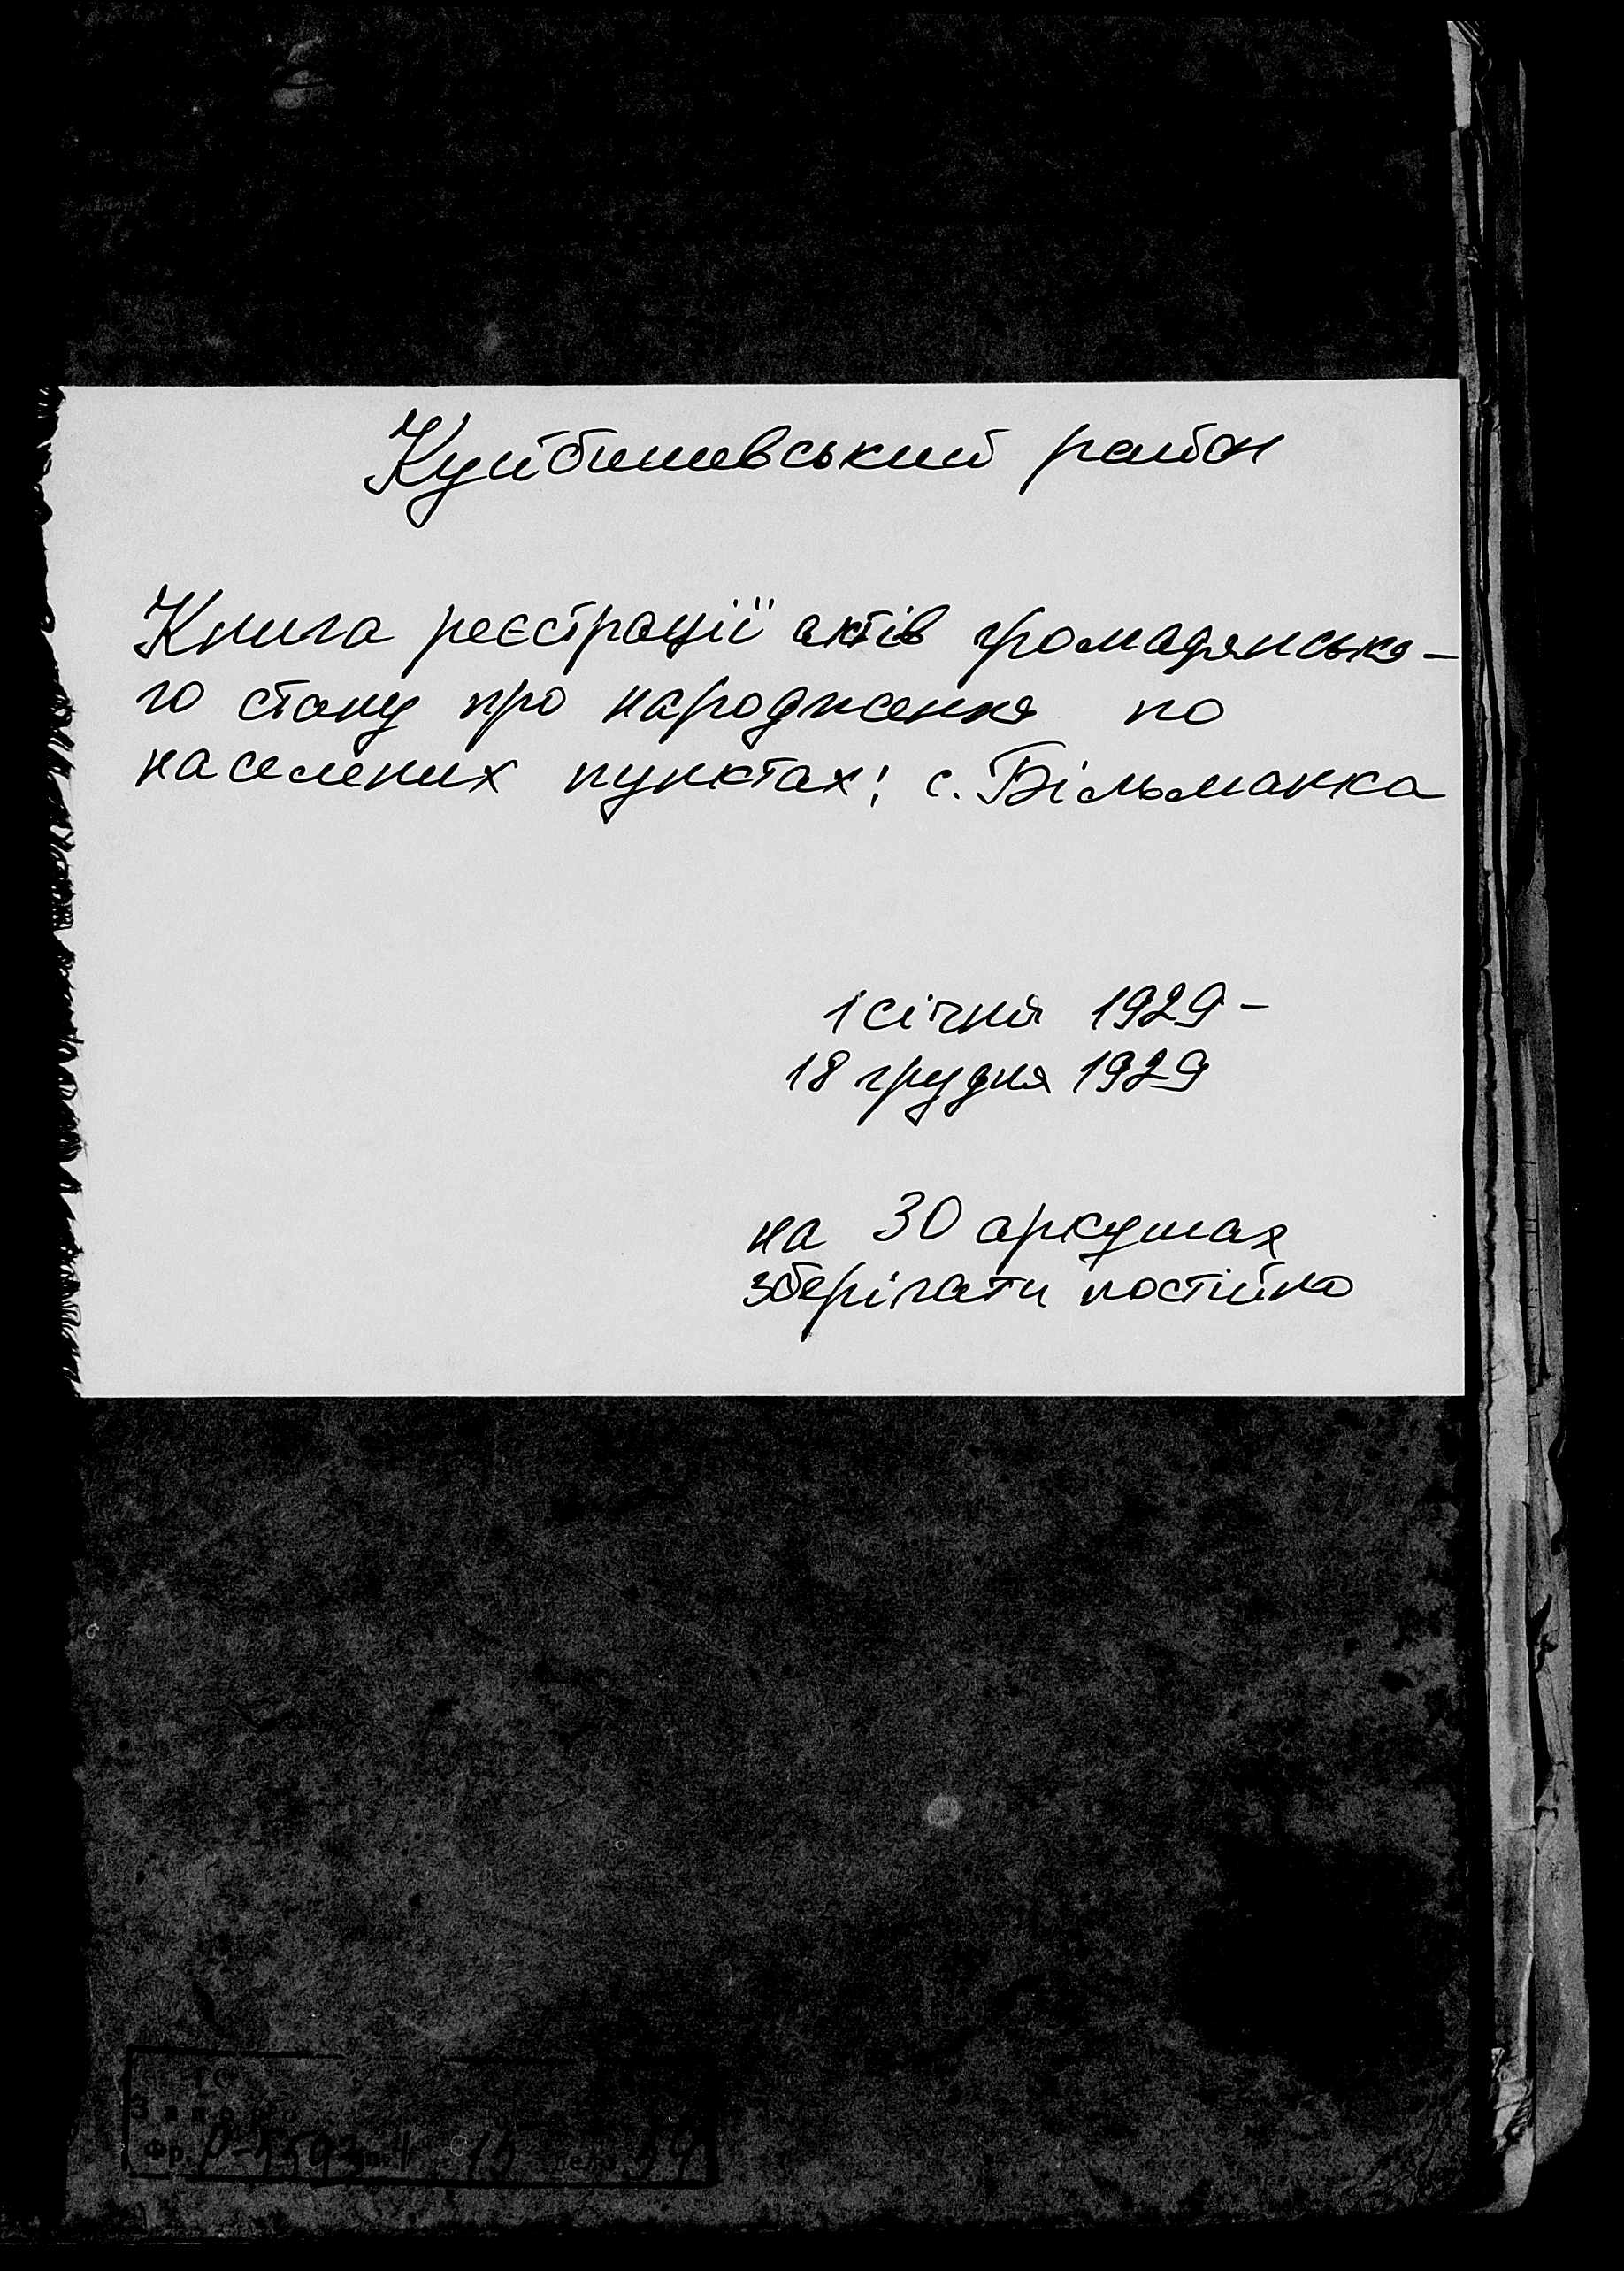 Куйбишевський район
Книга реєстрації актів громадянсько-
го стану про народження по
населених пунктах: с. Більманка
1 січня 1929 -
18 грудня 1929
на 30 аркушах
зберігати постійно
Фр. Р-5593 15 54